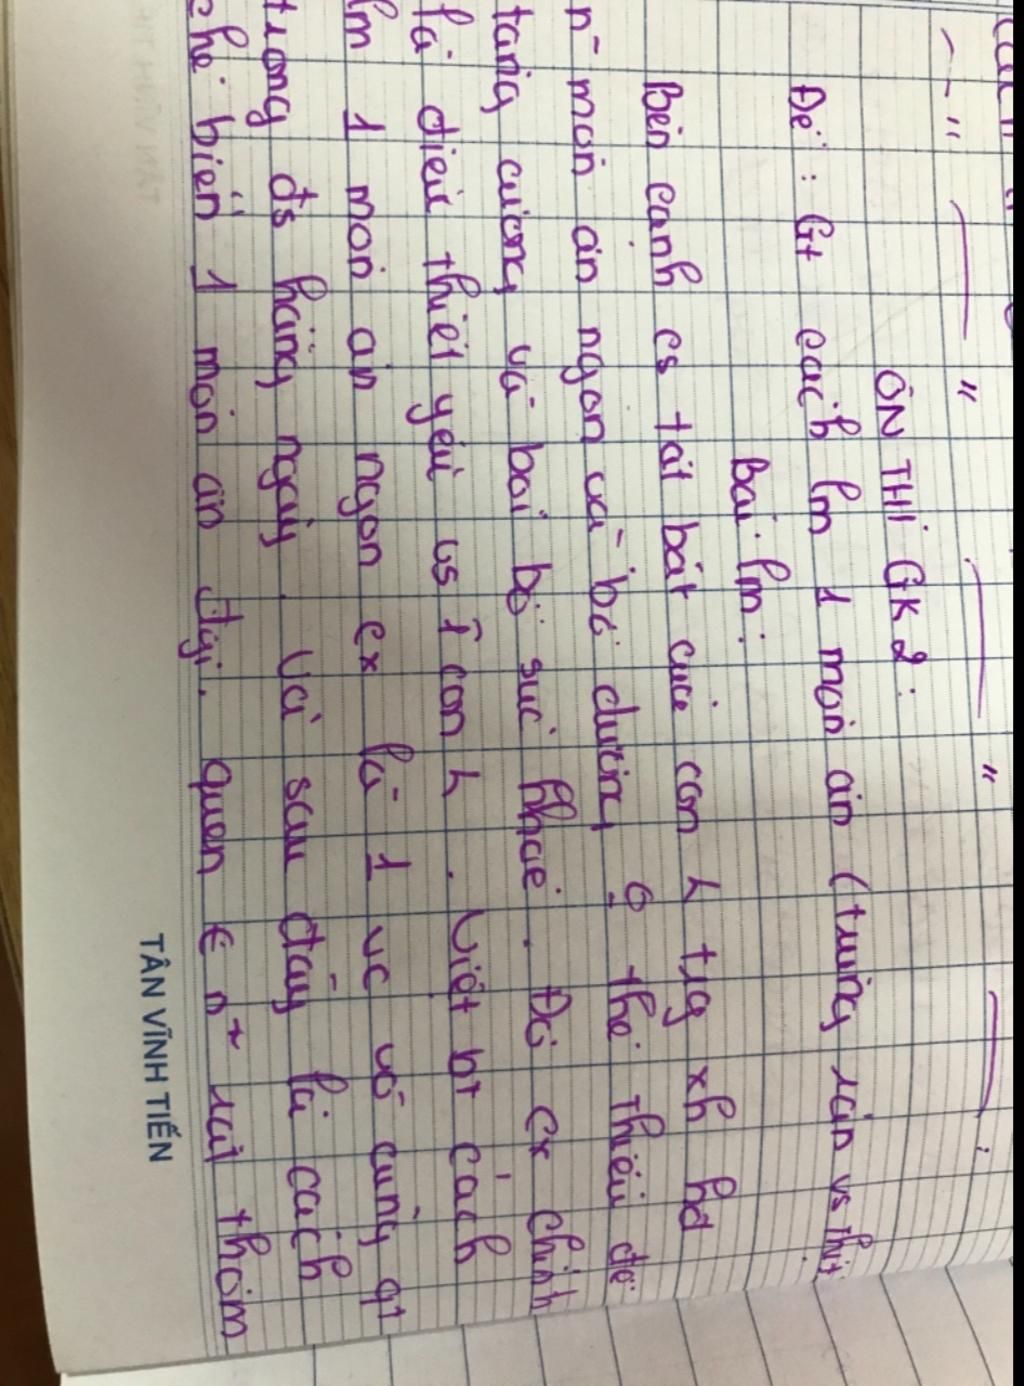 ÔN THI GK2:
Đề: Gt cách lm 1 món ăn (trứng rán vs thịt
Bài lm:
Bên cạnh cs tất bật của con h trg xh hđ
n~ món ăn ngon và bổ dưỡng ko thể thiếu để
tăng cường và bồi bổ sức khỏe. Đó cx chính
là điều thiết yếu vs 1 con h. Việt bt cách
lm 1 món ăn ngon cx là 1 vc vô cùng qt
trong đs hằng ngày. Và sau đây là cách
chế biến 1 món ăn quen € n+ rất thơm
TÂN VĨNH TIẾN